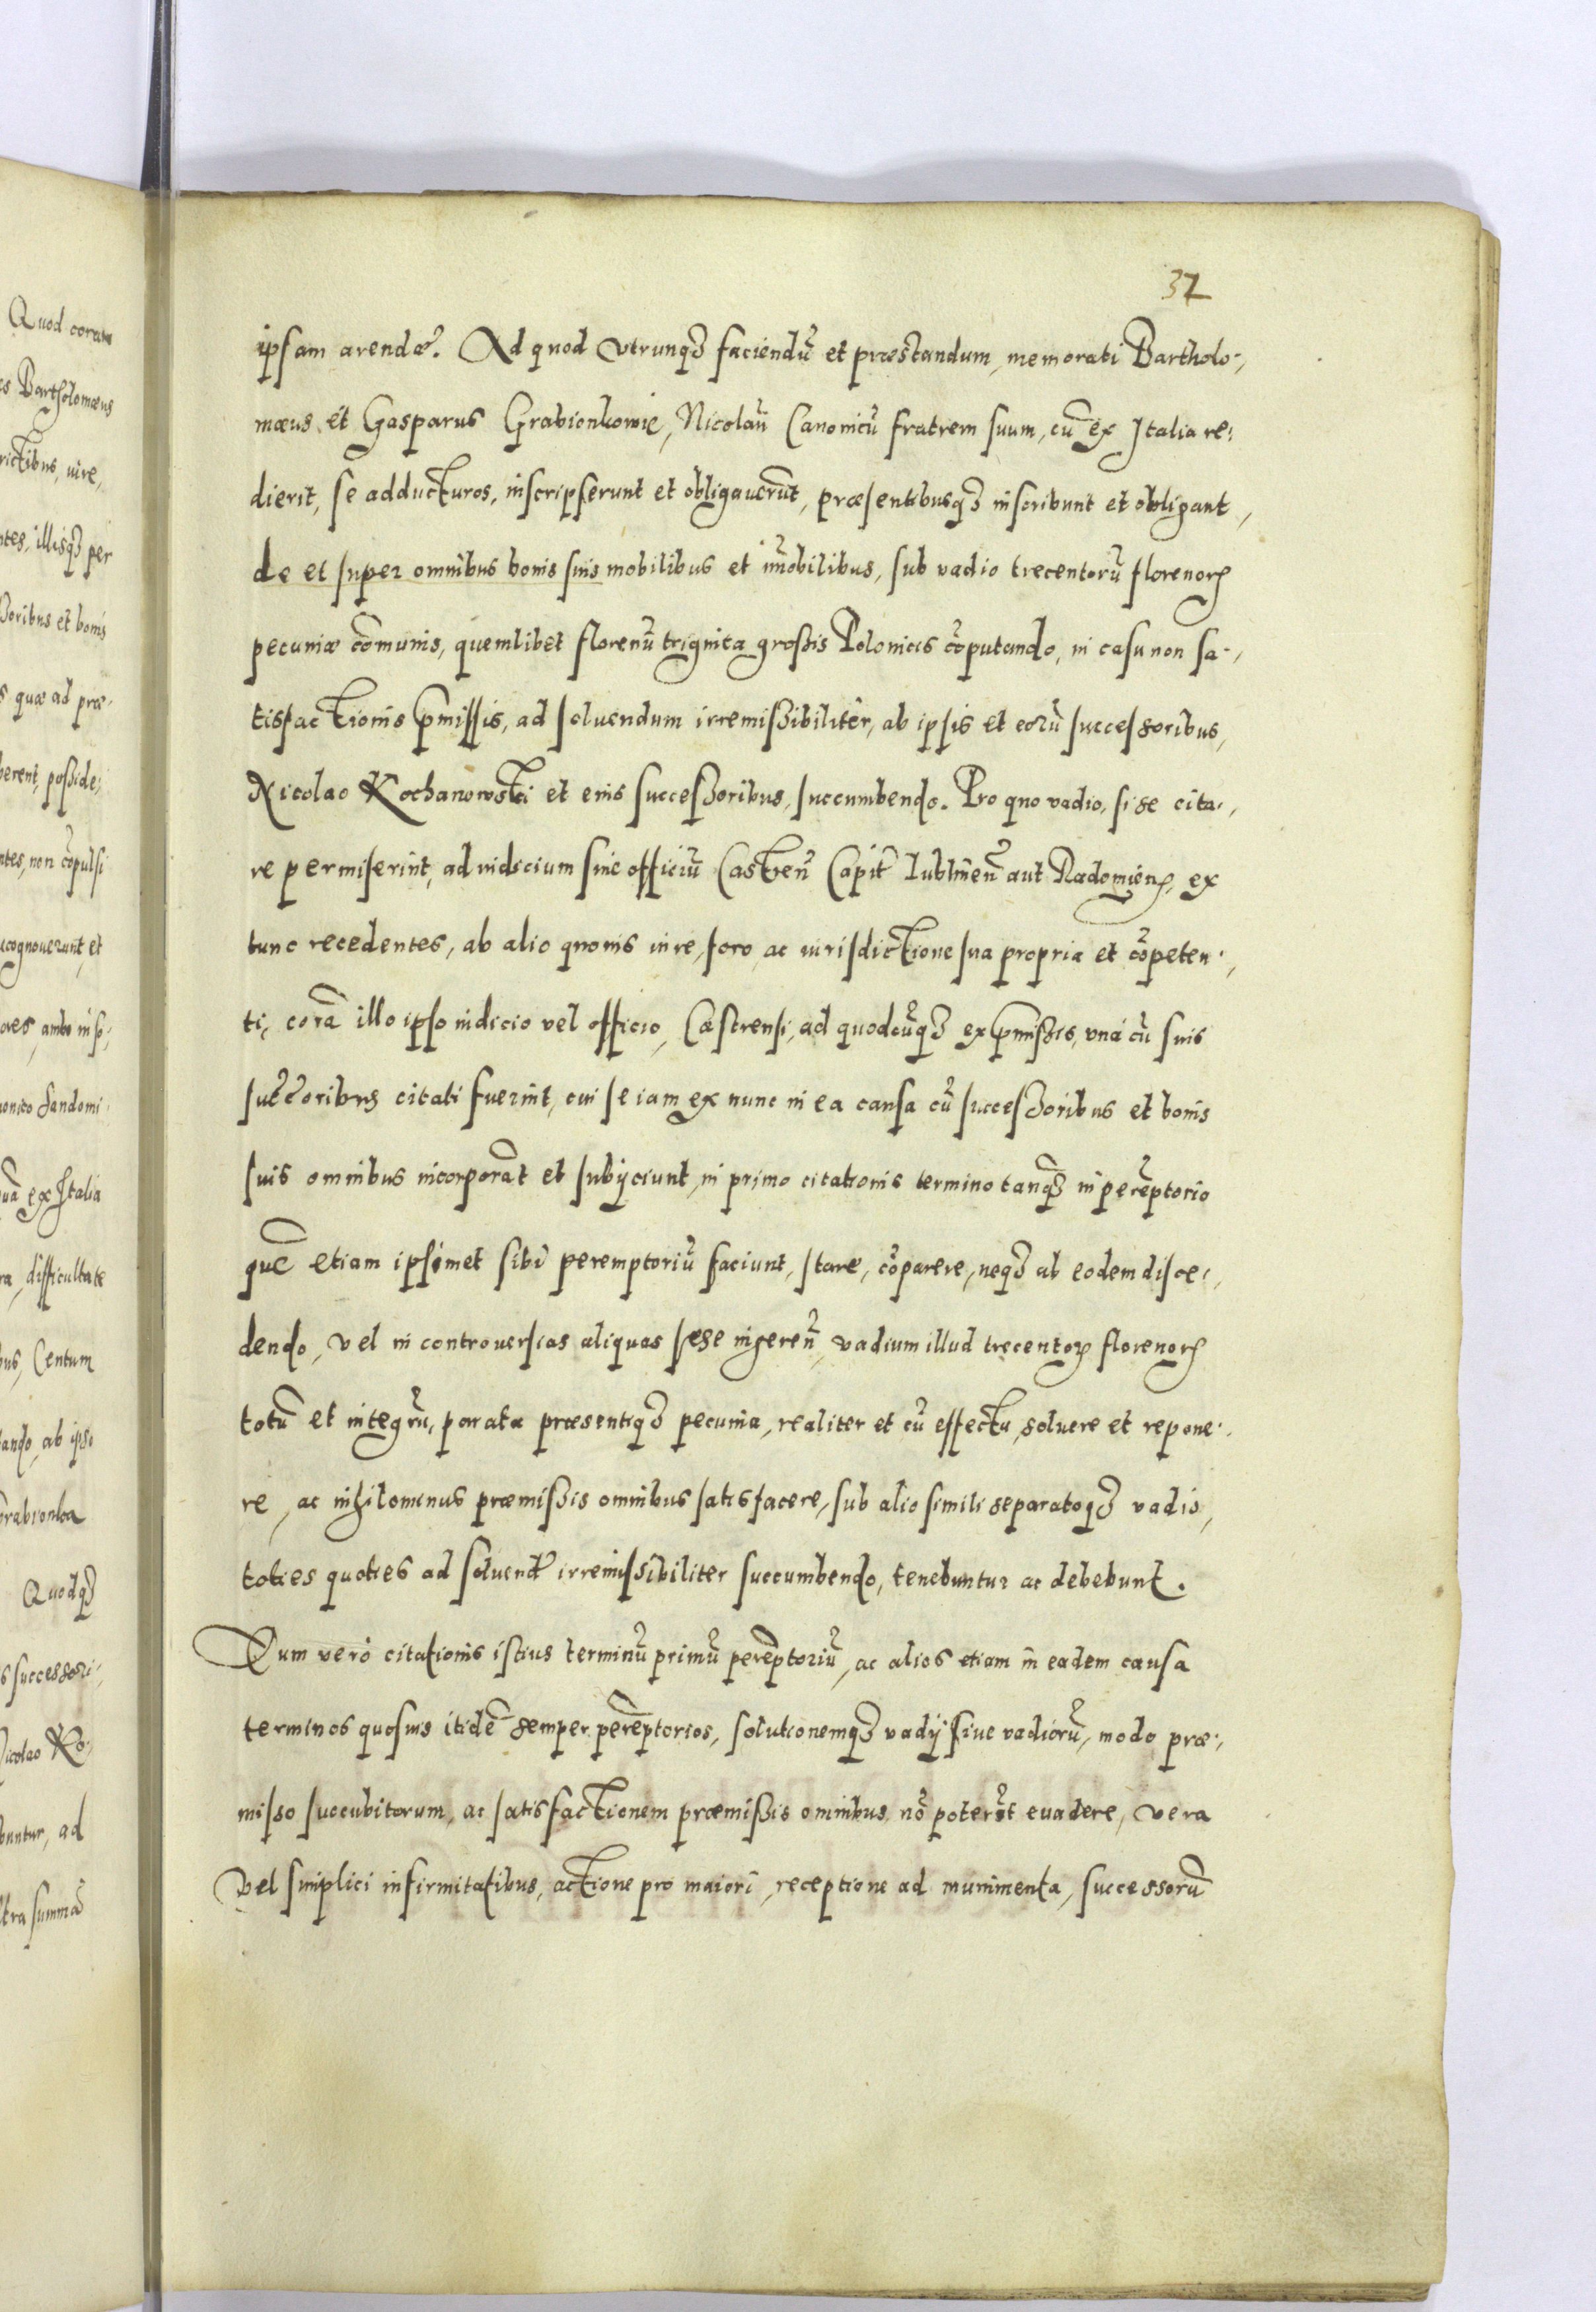 37
ipsam arendæ. Ad quod vtrunq3 faciendũ et præstandum, memorati Bartholo-,
mæus et Gasparus Grabionkowie, Nicolaũ Canonicũ fratrem suum, cũ ex Italia re-
dierit, se adducturos, inscripserunt et obligauerũt, præsentibusq3 inscribunt et obligant,
de et super omnibus bonis suis mobilibus et im̃obilibus, sub vadio trecentorũ florenorꝝ
pecuniæ com̃unis, quemlibet florenũ triginta großis Polonicis cõputando, in casu non sa-,
tisfactionis p̃missis, ad soluendum irremißibiliter, ab ipsis et eorũ successoribus,
Nicolao Kochanowski et eius succeßoribus, succumbendo. Pro quo vadio, si se cita-,
re permiserint, ad iudicium siue officiũ Castreñ Capit̃ Lublineñ aut Radomienꝭ, ex
tunc recedentes, ab alio quouis iure, foro ac iurisdictione sua propria et cõpeten-,
ti, corã illo ipso iudicio vel officio, Castrensi, ad quodcũq3 ex p̃mißis, vná cũ suis
succ̃oribus citati fuerint, cui se iam ex nunc in ea causa cũ succeßoribus et bonis
suis omnibus incorporãt et subijciunt, in primo citationis termino tanq̃3 in perẽptorio
quẽ etiam ipsimet sibi peremptoriũ faciunt, stare, cõparere, neq3 ab eodem disce-,
dendo, vel in controuersias aliquas sese ingereñ, vadium illud trecentorꝝ florenorꝝ
totũ et integrũ, parata præsentiq3 pecunia, realiter et cũ effectu, soluere et repone-
re, ac nihilominus præmißis omnibus satisfacere, sub alio simili separatoq3 vadio,
toties quoties ad soluend̃ irremissibiliter succumbendo, tenebuntur ac debebunt.
Dum verò citationis istius terminũ primũ perẽptoriũ, ac alios etiam in eadem causa
terminos quosuis itidẽ semper perẽptorios, solutionemq3 vadij siue vadiorũ, modo præ-,
misso succubitorum, ac satisfactionem præmißis omnibus, nõ poterũt euadere, vera
vel simplici infirmitatibus, actione pro maiori, receptione ad munimenta, successorũ